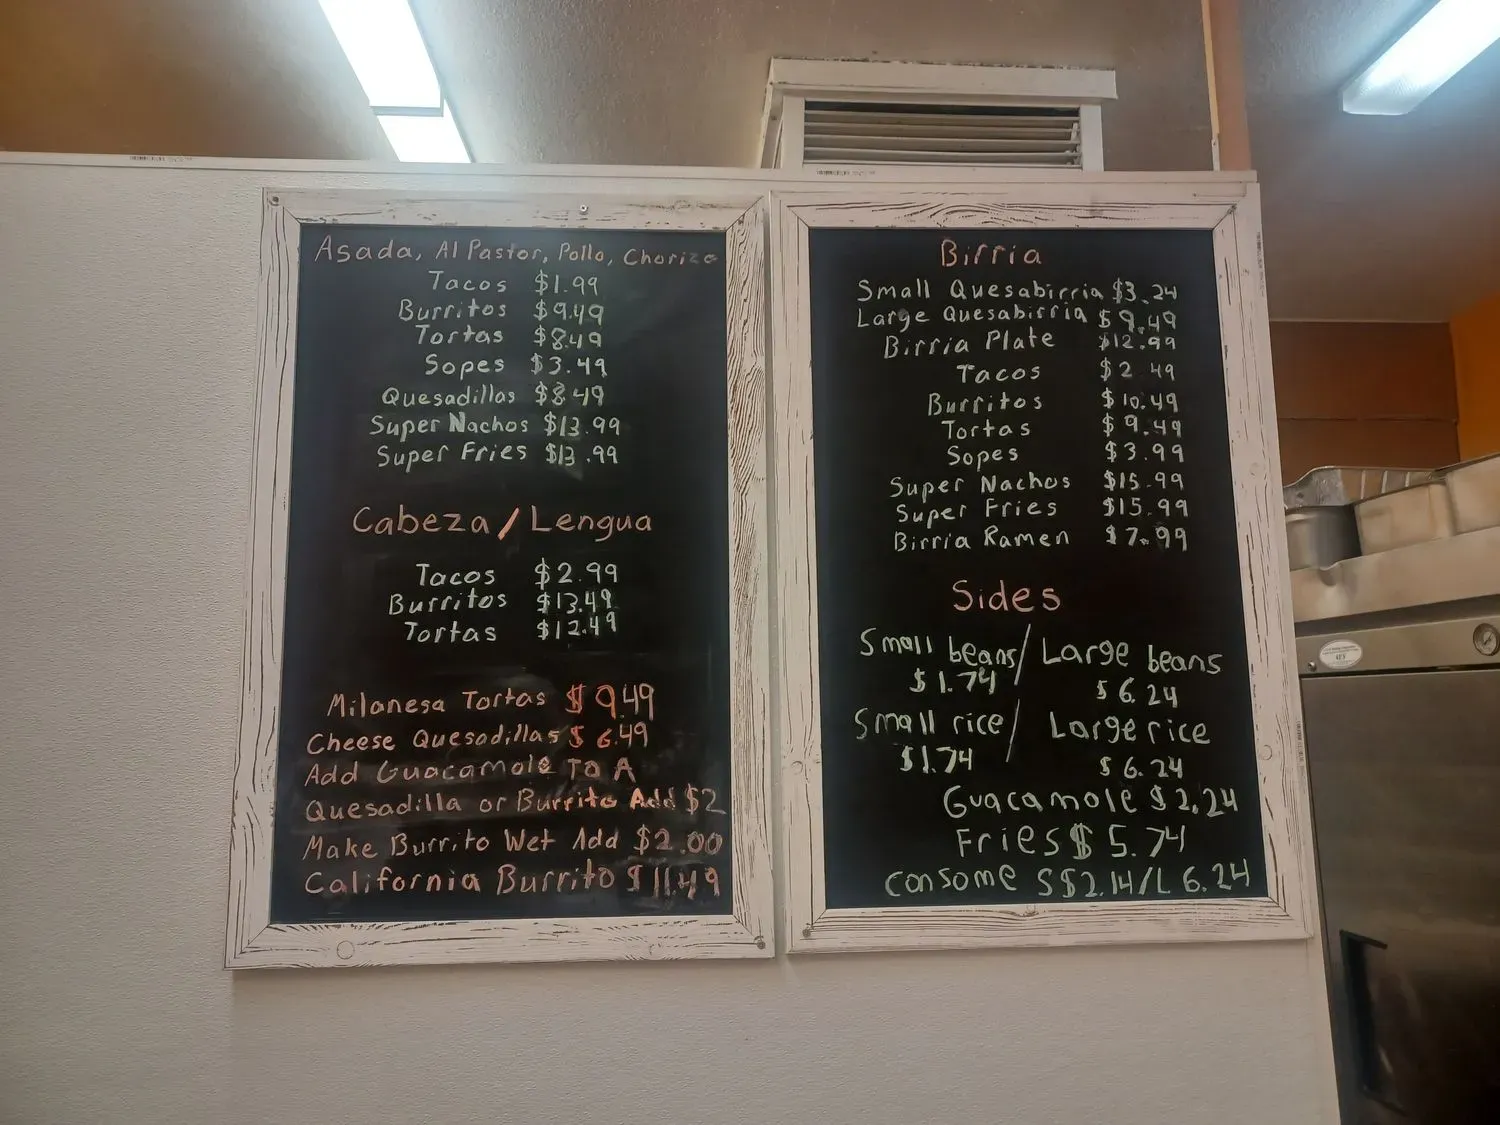 Asada, Al Pastor, Pollo, Chorizo
Tacos $1.99
Burritos $9.49
Tortas $8.49
Sopes $3.49
Quesadillas $8.49
Super Nachos $13.99
Super Fries $13.99
Cabeza/Lengua
Tacos $2.99
Burritos $13.49
Tortas $12.49
Milanesa Tortas $9.49
Cheese Quesadillas $6.49
Add Guacamole To A
Quesadilla or Burrito Add $2
Make Burrito Wet Add $2.00
California Burrito $11.49
Birria
Small Quesabirria $3.24
Large Quesabirria $9.49
Birria Plate $12.99
Tacos $2.49
Burritos $10.49
Tortas $9.49
Sopes $3.99
Super Nachos $15.99
Super Fries $15.99
Birria Ramen $7.99
Sides
Small beans/Large beans
$1.74 $6.24
Small rice/Large rice
$1.74 $6.24
Guacamole $2.24
Fries $5.74
Consome S$2.14/L 6.24